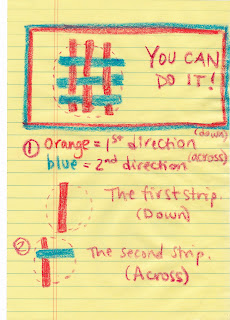 YOU CAN
DO IT!
① orange = 1st direction (down)
blue = 2nd direction (across)
The first strip.
(Down)
② The second strip.
(Across)